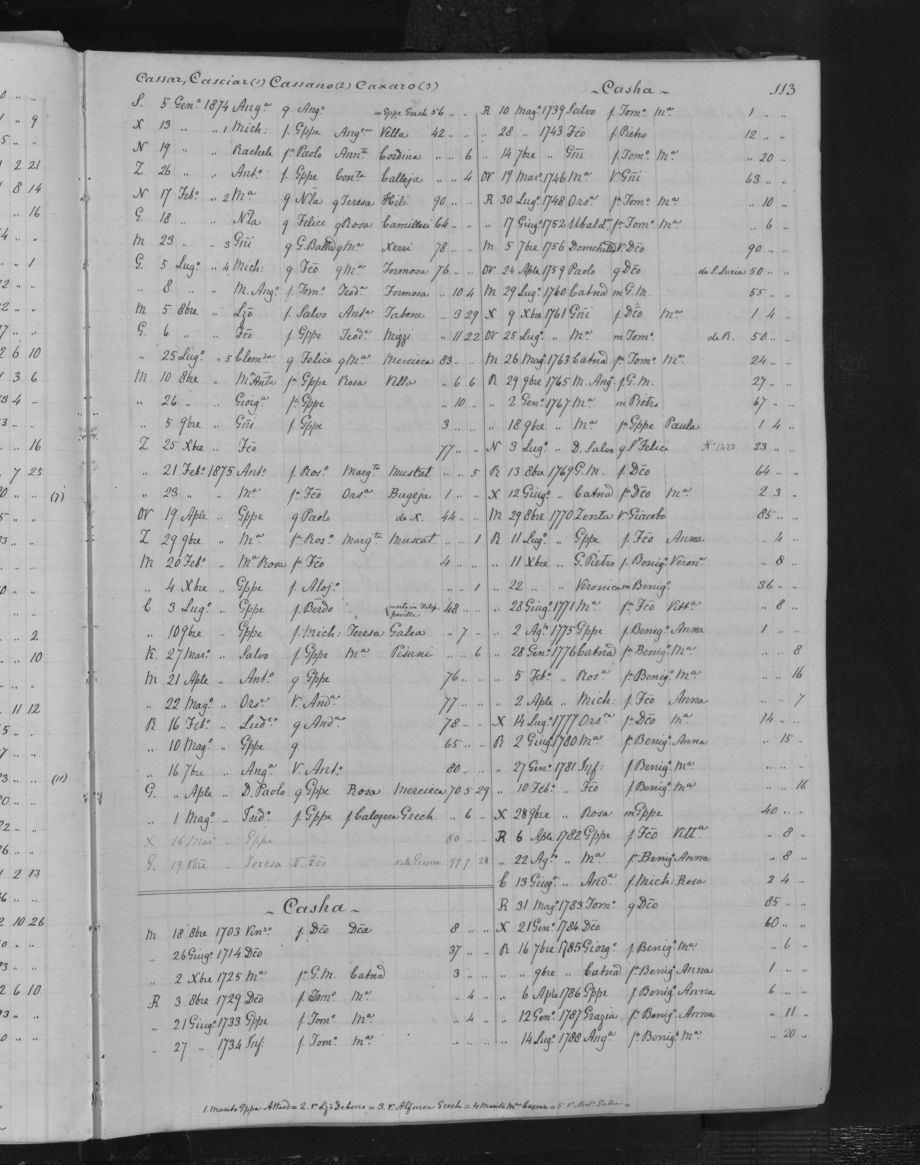 Cassar, Casciar (1) Cassano (2) Caxaro (3)
S. 5 Gen.º 1874 Ang.ª q Ang.º m Gppe Grech 56 „ „
X 13 „ „ 1 Mich: f. Gppe Ang.ª Vella 42 „ „
N 19 „ „ Rachele fª Paolo Ann.ta Cordina „ „ 6
Z 26 „ „ Ant.º f. Gppe Con.ta Calleja „ „ 4
N 17 Feb.º „ 2 M.ª q Nla q Teresa Hili 90 „ „
G. 18 „ „ Nla q Felice q Rosa Camilleri 64 „ „
M 23 „ „ 3 Gñi q G. Batta q M.ª Xerri 78 „ „
G. 5 Lug.º „ 4 Mich: q Fcõ q M.ª Formosa 76 „ „
„ 8 „ „ M. Ang.º f. Tom.º Teod.ª Formosa „ 10 4
M 5 8bre „ Ljõ f. Salvo Ant.ª Tabone „ 3 29
G. 6 „ „ Fcõ f. Gppe Teod.ª Mizzi „ 11 22
„ 25 Lug.º „ 5 Clem.ª q Felice q M.ª Mercieca 83 „ „
M 10 8bre „ M.ª Anta fª Gppe Rosa Vella „ 6 6
„ 26 „ „ Giorg.ª fª Gppe „ 10 „
„ 5 9bre „ Gñi f. Gppe 3 „ „
Z 25 Xbre „ Fcõ 77 „ „
„ 21 Feb.º 1875 Ant.º f. Ros.º Marg.ta Muscat „ „ 5
„ 23 „ „ M.ª fª Fcõ Ors.ª Bugeja 1 „ „
OV 19 Aple „ Gppe q Paolo de X. 44 „ „
Z 29 9bre „ M.ª fª Ros.º Marg.ta Muscat „ „ 1
M 20 Feb.º „ M.ª Rosa fª Fcõ 4 „ „
„ 4 Xbre „ Gppe f. Aloj.º „ „ 1
C 3 Lug.º „ Gppe f. Bẽrdo morto in Filip-pville 48 „ „
„ 10 9bre „ Gppe f. Mich: Teresa Galea „ 7 „
K 27 Mar.º „ Salvo f. Gppe M.ª Pisani „ „ 6
M 21 Aple „ Ant.º q Gppe 76 „ „
„ 22 Mag.º „ Ors.ª V. And.ª 77 „ „
R 16 Feb.º „ q And.ª 78 „ „
„ 10 Mag.º „ Gppe q 65 „ „
„ 16 7bre „ Ang.ª V. Ant.º 80 „ „
G. „ Aple „ D. Paolo q Gppe Rosa Mercieca 70 5 29
„ 1 Mag.º „ Isid.º f. Gppe f Calogera Grech „ 6 „
X 16 Mar.º „ Gppe 80 „ „
G. 19 8bre „ Teresa V. Fcõ 99 7 28
~ Casha ~
M 18 8bre 1703 Vinz.º f. Dcõ Dcã 8 „ „
„ 26 Giug.º 1714 Dcõ 37 „ „
„ 2 Xbre 1725 M.ª fª G.M. Catnã 3 „ „
R 3 8bre 1729 Dcõ f. Tom.º M.ª „ 4 „
„ 21 Giug.º 1733 Gppe f. Tom.º M.ª „ 4 „
„ 27 „ 1734 Inf: f. Tom.º M.ª „ „ „
~ Casha ~ 113
R 10 Mag.º 1739 Salvo f. Tom.º M.ª 1 „ „
„ 28 „ 1743 Fcõ f. Pietro 12 „ „
„ 14 7bre „ Gñi f. Tom.º M.ª „ 20 „
OV 19 Mar.º 1746 M.ª V. Gñi 63 „ „
R 30 Lug.º 1748 Ors.ª fª Tom.º M.ª „ 10 „
„ 17 Giug.º 1752 Ubald.ª fª Tom.º M.ª „ 6 „
M 5 7bre 1756 Domenica V. Dcõ 90 „ „
OV 24 Aple 1759 Paolo q Dcõ da S. Lucia 50 „ „
M 29 Lug.º 1760 Catnã m G.M. 55 „ „
X 9 Xbre 1761 Gñi f. Dcõ M.ª 1 4 „
OV 25 Lug.º „ M.ª m Tom.º de B. 50 „ „
M 26 Mag.º 1763 Catnã fª Tom.º M.ª 24 „ „
R 29 9bre 1765 M. Ang.º f. G.M. 27 „ „
„ 2 Gen.º 1767 M.ª m Pietro 67 „ „
„ 18 9bre „ M.ª fª Gppe Paula 1 4 „
N 3 Lug.º „ D. Salvo q Sr Felice N.º 1423 23 „ „
R 13 8bre 1769 G.M. f. Dcõ 64 „ „
X 12 Giug.º „ Catnã fª Dcõ M.ª 2 3 „
M 29 8bre 1770 Zenta V. Giacobo 85 „ „
R 11 Lug.º „ Gppe f. Fcõ Anna „ 4 „
„ 11 Xbre „ G. Pietro f. Benig.º Veron.ª „ 8 „
„ 22 „ „ Veronica m Benig.º 36 „ „
„ 28 Giug.º 1771 M.ª fª Fcõ Vitt.ª „ 8 „
„ 2 Ag.to 1775 Gppe f. Benig.º Anna 1 „ „
„ 28 Gen.º 1776 Catnã fª Benig.º M.ª „ „ 8
„ 5 Feb.º „ Ros.ª fª Benig.º M.ª „ „ 16
„ 2 Aple „ Mich: f. Fcõ Anna „ „ 7
X 14 Lug.º 1777 Ors.ª fª Dcõ M.ª 14 „ „
R 2 Giug.º 1780 M.ª fª Benig.º Anna „ 15 „
„ 27 Gen.º 1781 Inf: f. Benig.º M.ª „ „ „
„ 10 Feb.º „ Fcõ f. Benig.º M.ª „ „ 16
X 28 9bre „ Rosa m Gppe 40 „ „
R 6 Aple 1782 Gppe f. Fcõ Vitt.ª „ 8 „
„ 22 Ag.to „ M.ª fª Benig.º Anna „ 8 „
C 13 Giug.º „ And.ª f. Mich: Rosa 2 4 „
R 31 Mag.º 1783 Tom.º q Dcõ 85 „ „
X 21 Gen.º 1784 Dcõ 60 „ „
R 16 7bre 1785 Giorg.º f. Benig.º M.ª „ 6 „
„ „ 9bre „ Catnã fª Benig.º Anna 1 „ „
„ 6 Aple 1786 Gppe f. Benig.º Anna 6 „ „
„ 12 Gen.º 1787 Grazia fª Benig.º Anna „ 11 „
„ 14 Lug.º 1788 Ang.ª fª Benig.º M.ª „ 20 „
1. Marito Gppa Attard = 2. V. Ljõ Debono = 3. V. Alfonsa Grech = 4 Marito M.ª Cassar = 5 V. Ant.º Galea =